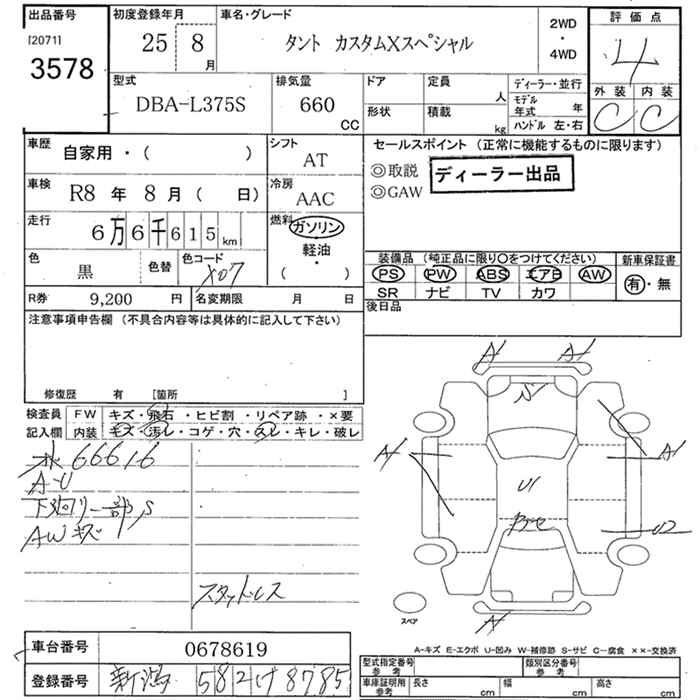 出品番号
[2071]
3578
初度登録年月
25 8月
車名・グレード
タント カスタムXスペシャル
2WD
・
4WD
評価点
4
外装 内装
C C
型式
DBA-L375S
排気量
660
CC
ドア
形状
定員
人
積載
kg
ディーラー・並行
モデル年式 年
ハンドル 左・右
車歴
自家用・( )
シフト
AT
車検
R8 年 8 月 ( 日)
冷房
AAC
走行
6万6千615km
燃料
ガソリン
軽油
・
( )
色
黒
色替
色コード
X07
R券 9,200 円
名変期限 月 日
セールスポイント (正常に機能するものに限ります)
◎取説
◎GAW
ディーラー出品
装備品 (純正品に限り〇をつけてください)
PS PW ABS エアB AW
SR ナビ TV カワ
新車保証書
有・無
後日品
注意事項申告欄 (不具合内容等は具体的に記入して下さい)
修復歴 有 [箇所 ]
検査員記入欄
FW キズ・飛石・ヒビ割・リペア跡・×要
内装 キズ・汚レ・コゲ・穴・スレ・キレ・破レ
66616
A-U
下廻り一部S
AWキズ
スタッドレス
A1 A1
A1 A1
U1
U2
A1
スペア
A-キズ E-エクボ U-凹み W-補修跡 S-サビ C-腐食 ××-交換済
車台番号 0678619
登録番号 新潟 582 け 8785
型式指定番号 参考
類別区分番号 参考
車庫証明用 参考
長さ cm
幅 cm
高さ cm